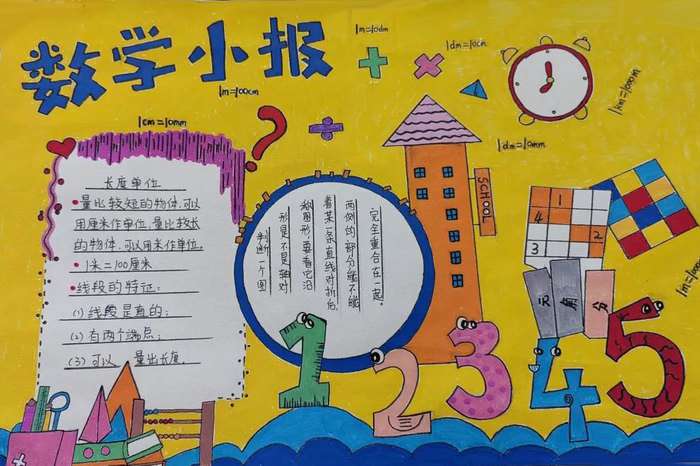 数学小报
1m=10dm
1dm=10cm
1km=1000m
1m=100cm
1cm=10mm
1dm=10mm
长度单位
量比较短的物体,可以
用厘米作单位,量比较长
的物体,可以用米作单位.
1米=100厘米
线段的特征:
(1)线段是直的;
(2)有两个端点;
(3)可以 量出长度.
判断一个图
形是不是轴对
称图形,要看它沿
着某一条直线对折后,
两侧的部分能不能
完全重合在一起。
SCHOOL
1
4 2
3
元 角 分
1 2 3 4 5